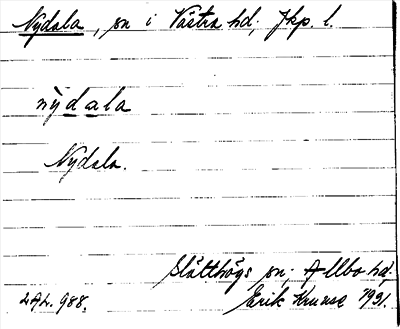 Nydala, sn i Västra hd, Jkp. l.
nỳdala
Nydala.
Slätthögs sn, Allbo hd,
2A2. 988. Erik Kruuse 1931.